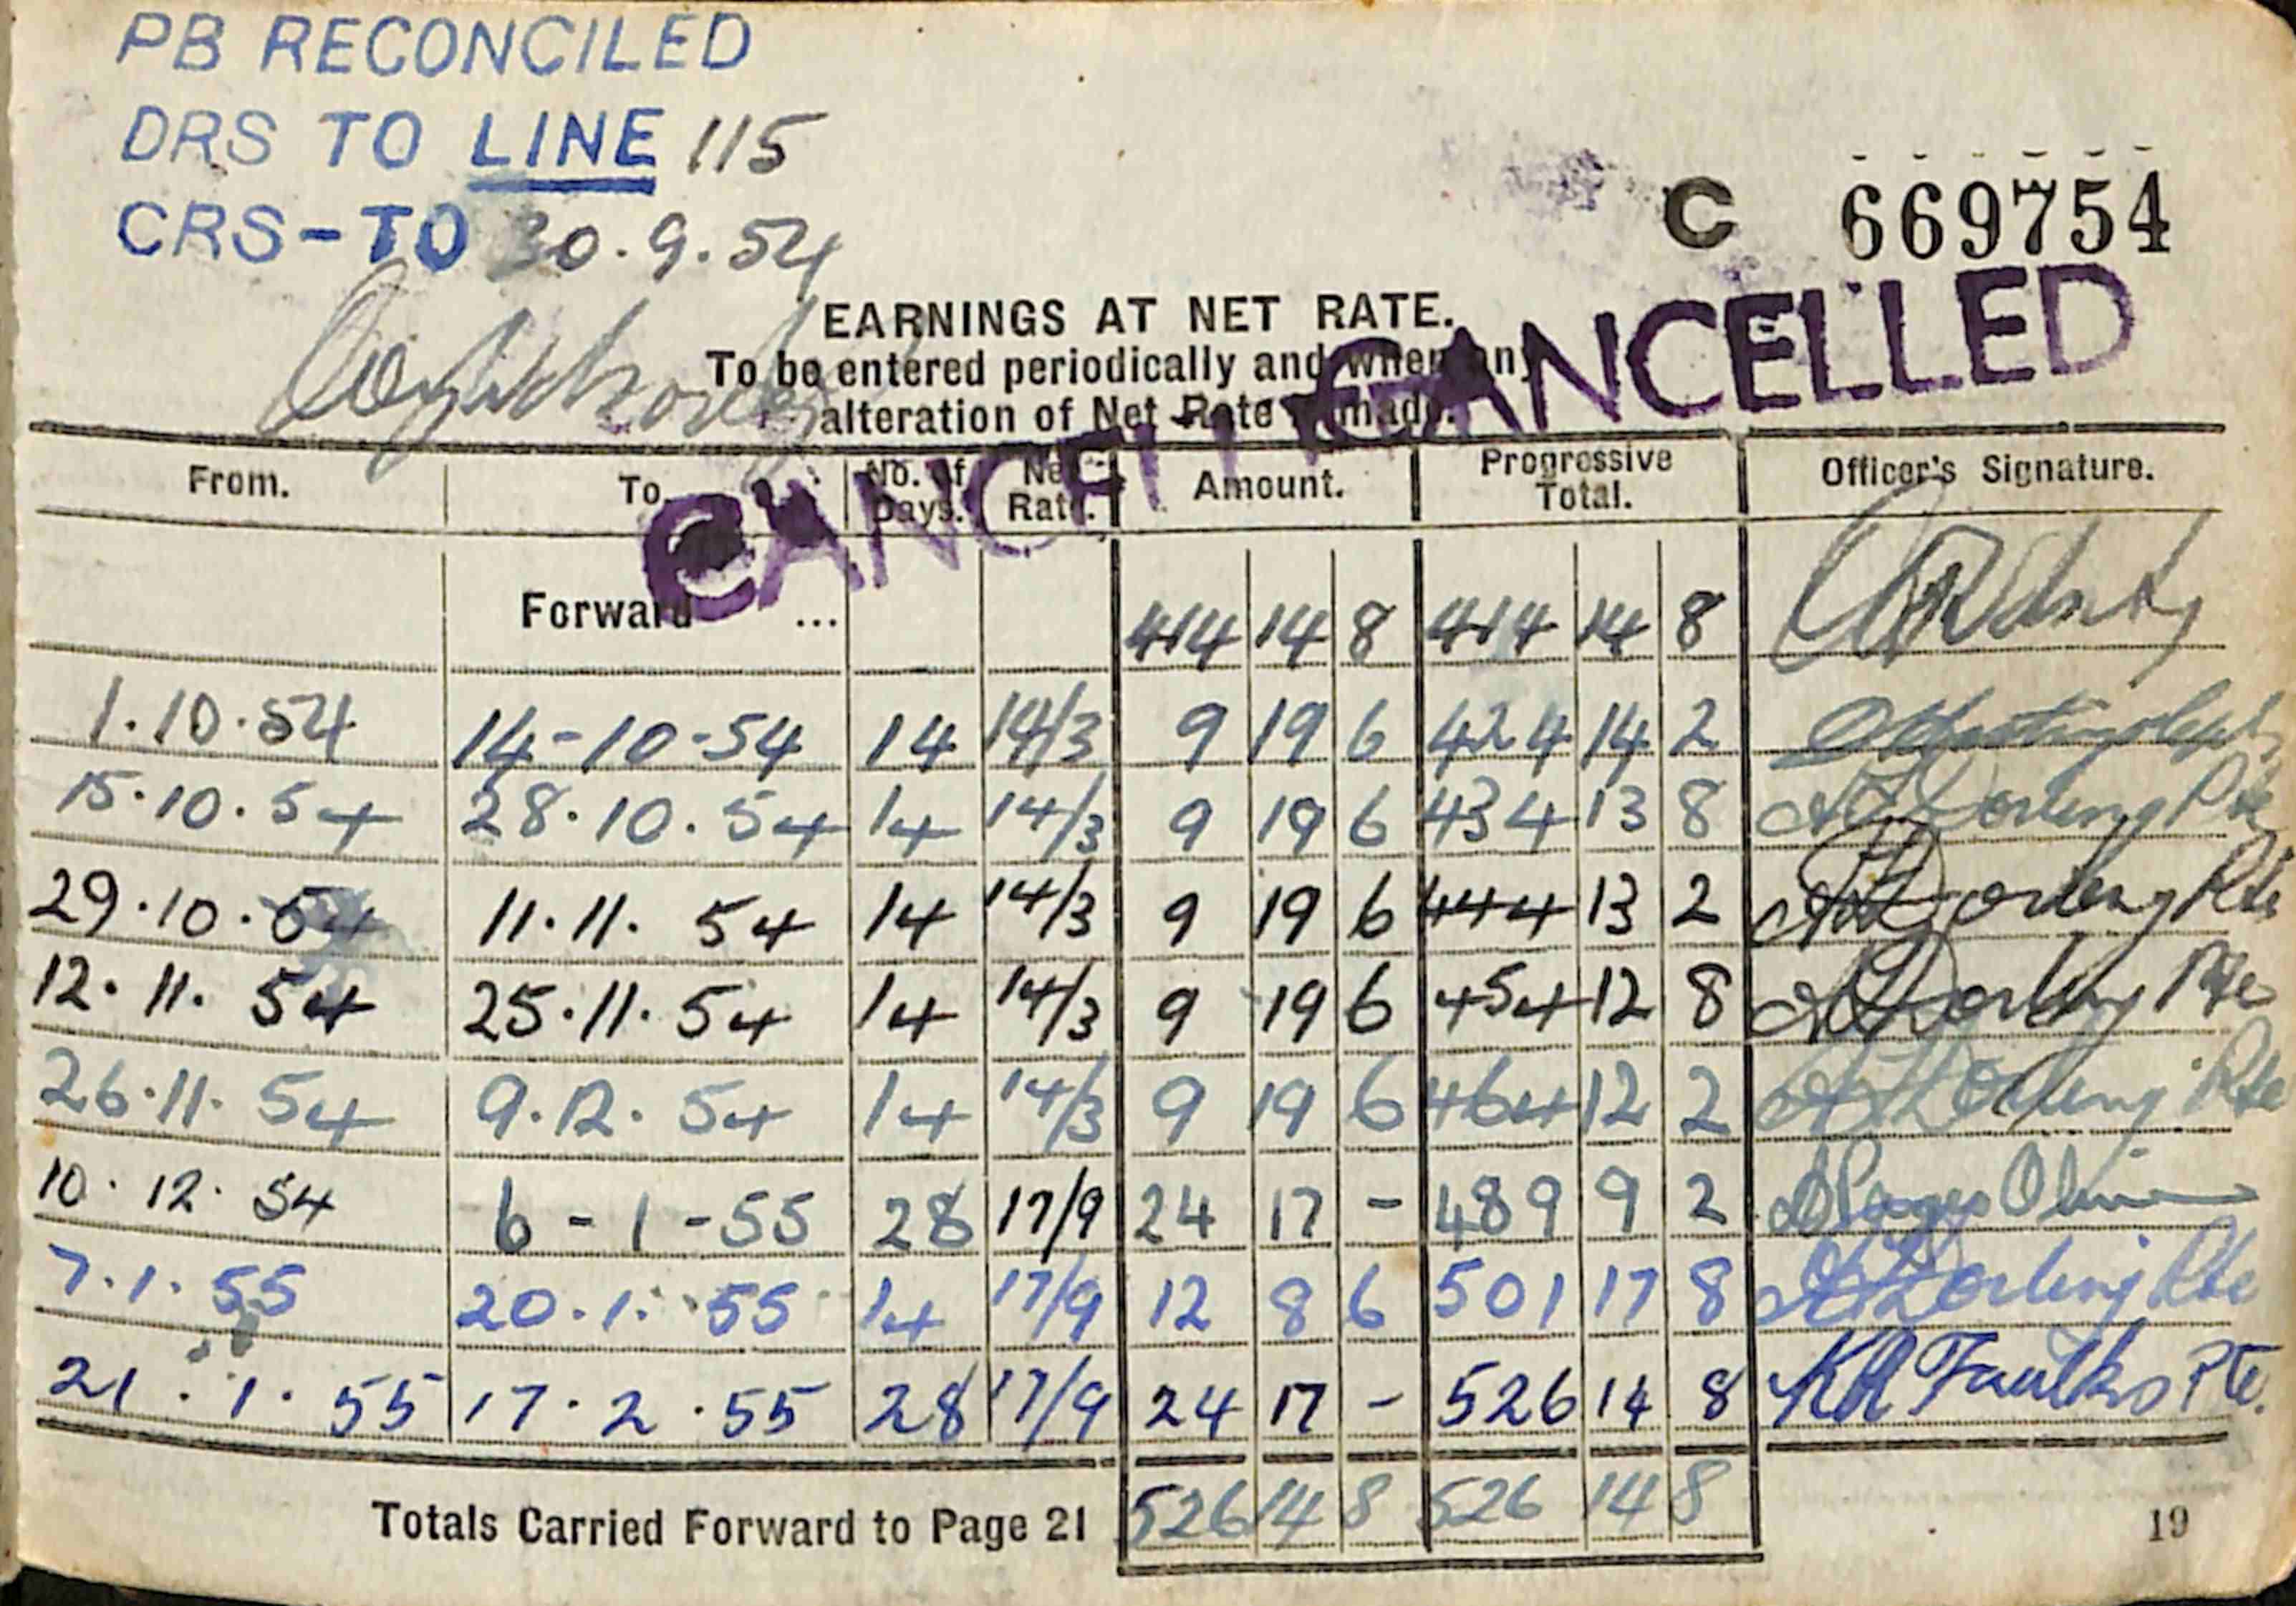 PB RECONCILED
DRS TO LINE 115
CRS-TO 30.9.54
C 669754
CANCELLED
EARNINGS AT NET RATE.
To be entered periodically and when any
alteration of Net Rate is made.
CANCELLED
From. To. No. of Days. Net Rate. Amount. Progressive Total. Officer's Signature.
Forward ... 414 14 8 414 14 8
1.10.54 14-10-54 14 14/3 9 19 6 424 14 2
15.10.54 28.10.54 14 14/3 9 19 6 434 13 8 Dorling Pte
29.10.54 11.11.54 14 14/3 9 19 6 444 13 2 Dorling Pte
12.11.54 25.11.54 14 14/3 9 19 6 454 12 8 Dorling Pte
26.11.54 9.12.54 14 14/3 9 19 6 464 12 2 Dorling Pte
10.12.54 6-1-55 28 17/9 24 17 - 489 9 2
7.1.55 20.1.55 14 17/9 12 8 6 501 17 8 Dorling Pte
21.1.55 17.2.55 28 17/9 24 17 - 526 14 8 KR Faulks Pte.
Totals Carried Forward to Page 21 526 14 8 526 14 8
19